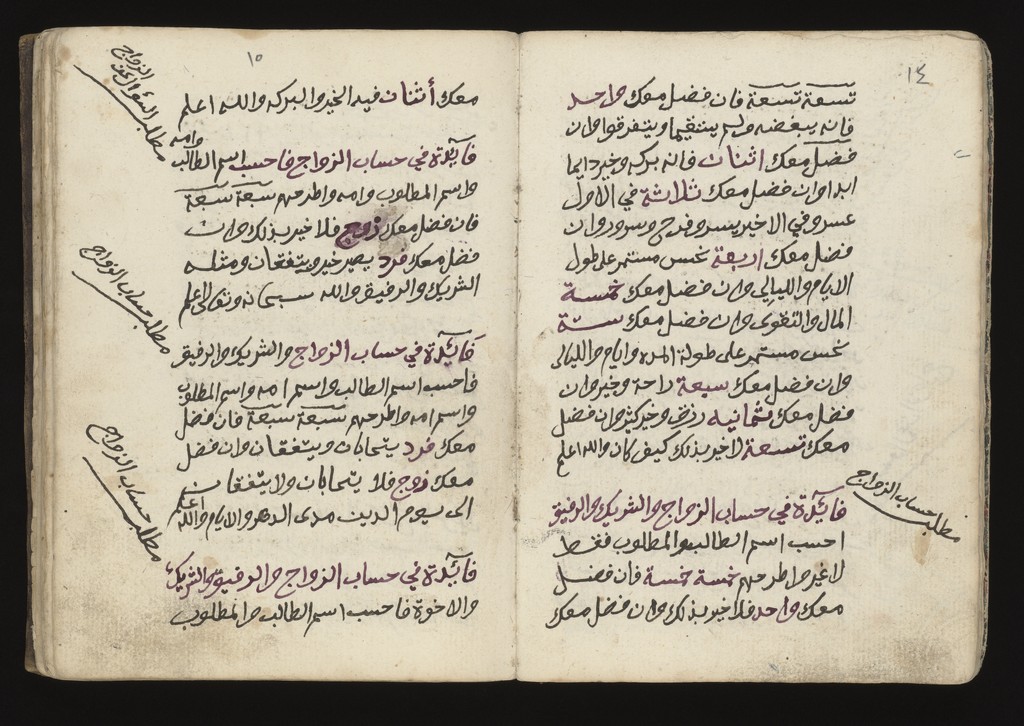 ١٤
تسعة تسعة فان فضل معك واحد
فانه يبغضه ولم يستقيما ويتفرقوا وان
فضل معك اثنان فانه بركه وخير دايما
ابدا وان فضل معك ثلاثة في الاول
عسر وفي الاخير يسر وفرح وسرور وان
فضل معك اربعة نحس مستمر على طول
الايام والليالي وان فضل معك خمسة
المال والتقوى وان فضل معك ستة
نحس مستمر على طولة المده وايام والليالى
وان فضل معك سبعة راحة وخير وان
فضل معك ثمانيه رزق وخير كثير وان فضل
معك تسعة لا خير بذلك كيف كان والله اعلم
مطلب حساب الزواج
فائدة في حساب الزواج والشريك والرفيق
احسب اسم الطالب والمطلوب فقط
لا غير واطرحهم خمسة خمسة فان فضل
معك واحد فلا خير بذلك وان فضل معك
١٥
معك أثنان فيه الخير والبركه والله اعلم
مطلب السؤال عن الزواج
فائدة في حساب الزواج فاحسب اسم الطالب وامه
واسم المطلوب وامه واطرحهم سبعة سبعة
فان فضل معك زوج فلا خير بذلك وان
فضل معك فرد يصير خير ويتفقان ومثله
الشريك والرفيق والله سبحانه وتعالى اعلم
مطلب حساب الزواج
فائدة في حساب الزواج والشريك والرفيق
فاحسب اسم الطالب واسم امه واسم المطلوب
واسم امه واطرحهم سبعة سبعة فان فضل
معك فرد يتحابان ويتفقان وان فضل
معك زوج فلا يتحابان ولا يتفقان
الى يوم الدين مدى الدهر والايام والله اعلم
مطلب حساب الزواج
فائدة في حساب الزواج والرفيق والشريك
والاخوة فاحسب اسم الطالب والمطلوب